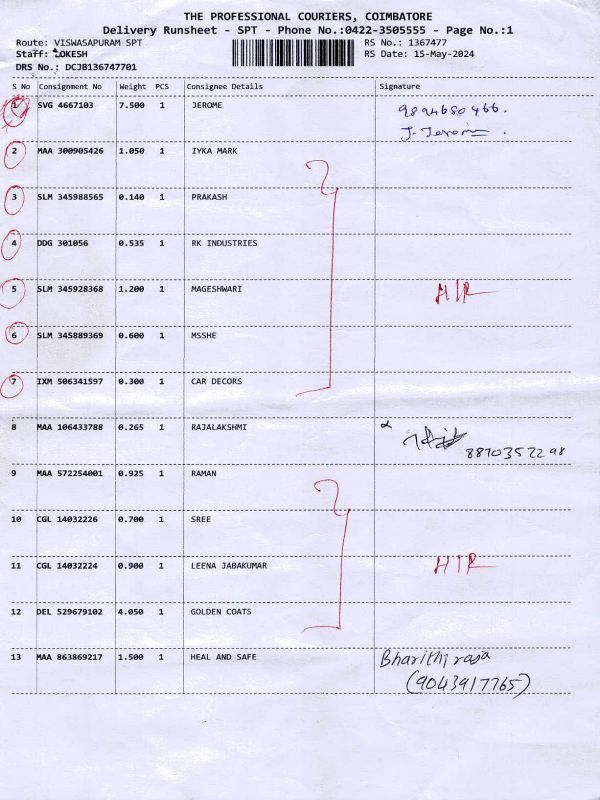 THE PROFESSIONAL COURIERS, COIMBATORE
Delivery Runsheet - SPT - Phone No.:0422-3505555 - Page No.:1
Route: VISWASAPURAM SPT RS No.: 1367477
Staff: LOKESH RS Date: 15-May-2024
DRS No.: DCJB136747701
S No Consignment No Weight PCS Consignee Details Signature
1 SVG 4667103 7.500 1 JEROME 9894680466.
J. Jerome.
2 MAA 300905426 1.050 1 IYKA MARK
3 SLM 345988565 0.140 1 PRAKASH
4 DDG 301056 0.535 1 RK INDUSTRIES
5 SLM 345928368 1.200 1 MAGESHWARI HIR
6 SLM 345889369 0.600 1 MSSHE
7 IXM 506341597 0.300 1 CAR DECORS
8 MAA 106433788 0.265 1 RAJALAKSHMI
8870357298
9 MAA 572254001 0.925 1 RAMAN
10 CGL 14032226 0.700 1 SREE
11 CGL 14032224 0.900 1 LEENA JABAKUMAR HIR
12 DEL 529679102 4.050 1 GOLDEN COATS
13 MAA 863869217 1.500 1 HEAL AND SAFE Bharithi raja
(9043917765)